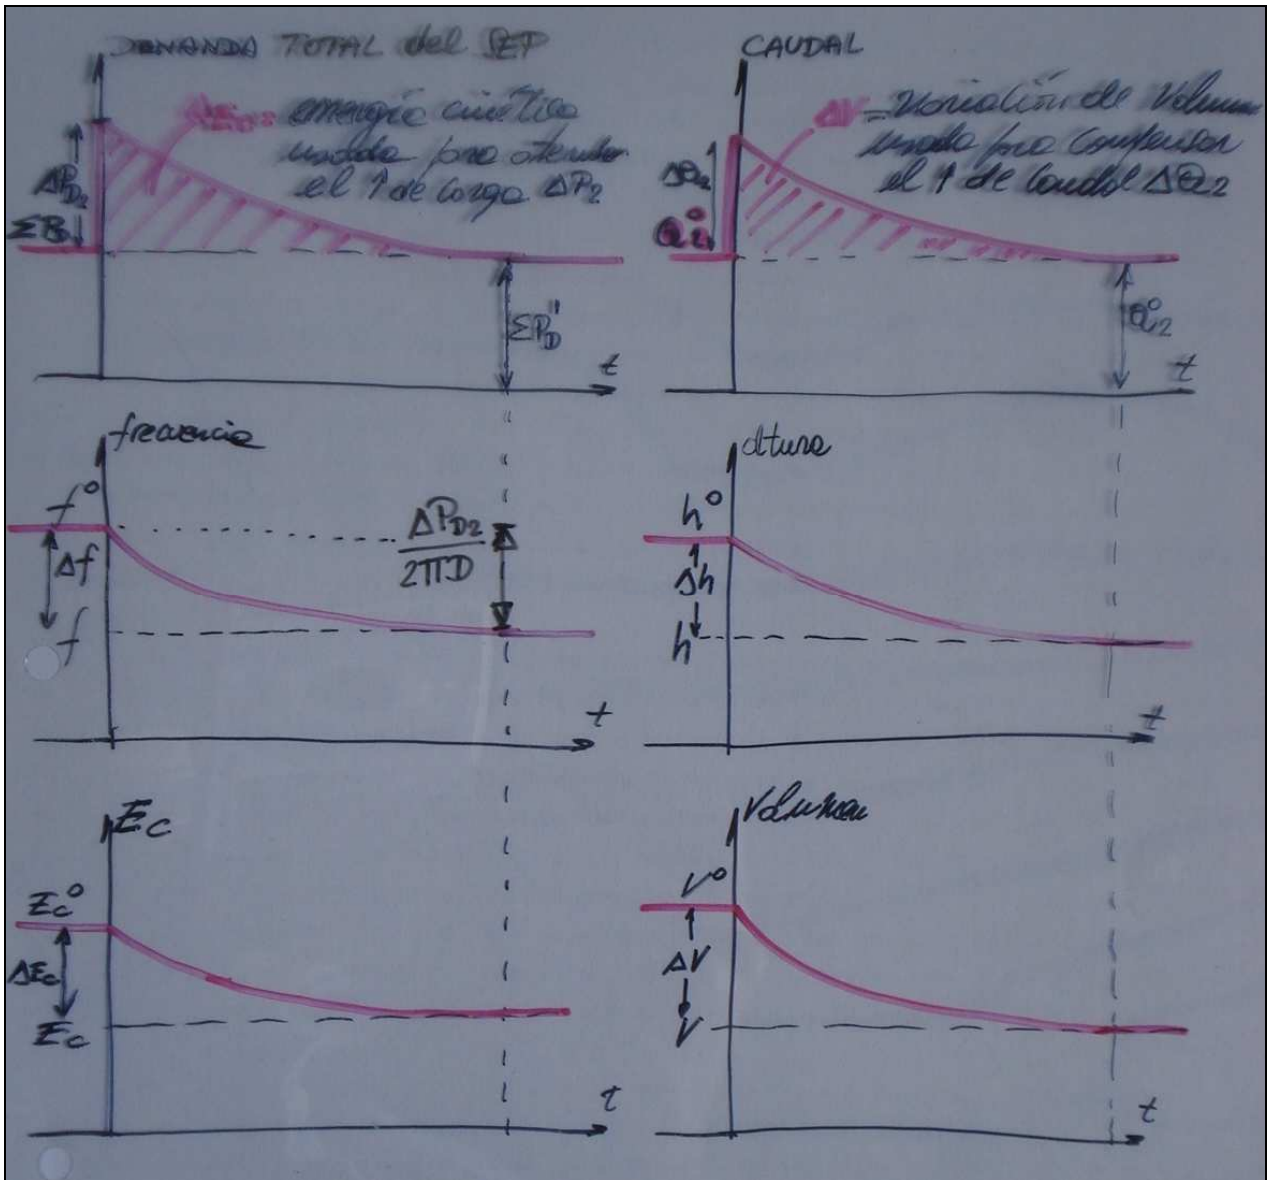 DEMANDA TOTAL del SEP
energía cinética
usada para atender
el ↑ de carga ΔP₂
ΔP_D₂
ΣP_D"
t
CAUDAL
ΔV = Variación de Volumen
usado para compensar
el ↑ de Caudal ΔQ₂
ΔQ₂
Q₂°
Q₂°
t
frecuencia
f°
Δf
f
ΔP_D₂
2πD
t
altura
h°
Δh
h
t
Ec
Ec°
ΔEc
Ec
t
Volumen
V°
ΔV
V
t